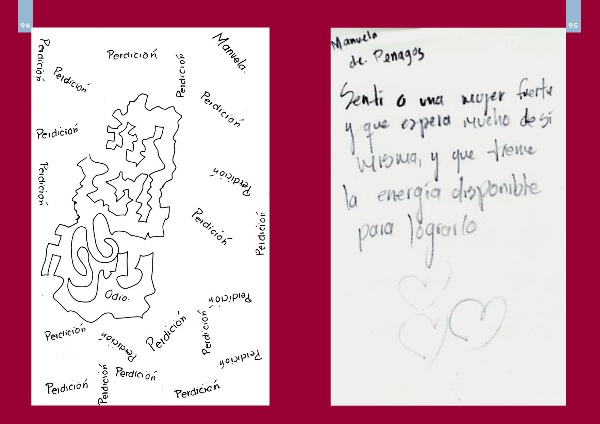 94
Perdición
Perdición
Perdición
Perdición
Manuela.
Perdición
Perdición
Perdición
Perdición
Perdición
Perdición
Odio.
Perdición
Perdición
Perdición
Perdición
Perdición
Perdición
Perdición
Perdición
Perdición
Perdición
95
Manuela
de Penagos
Sentí a una mujer fuerte
y que espera mucho de sí
misma, y que tiene
la energía disponible
para lograrlo